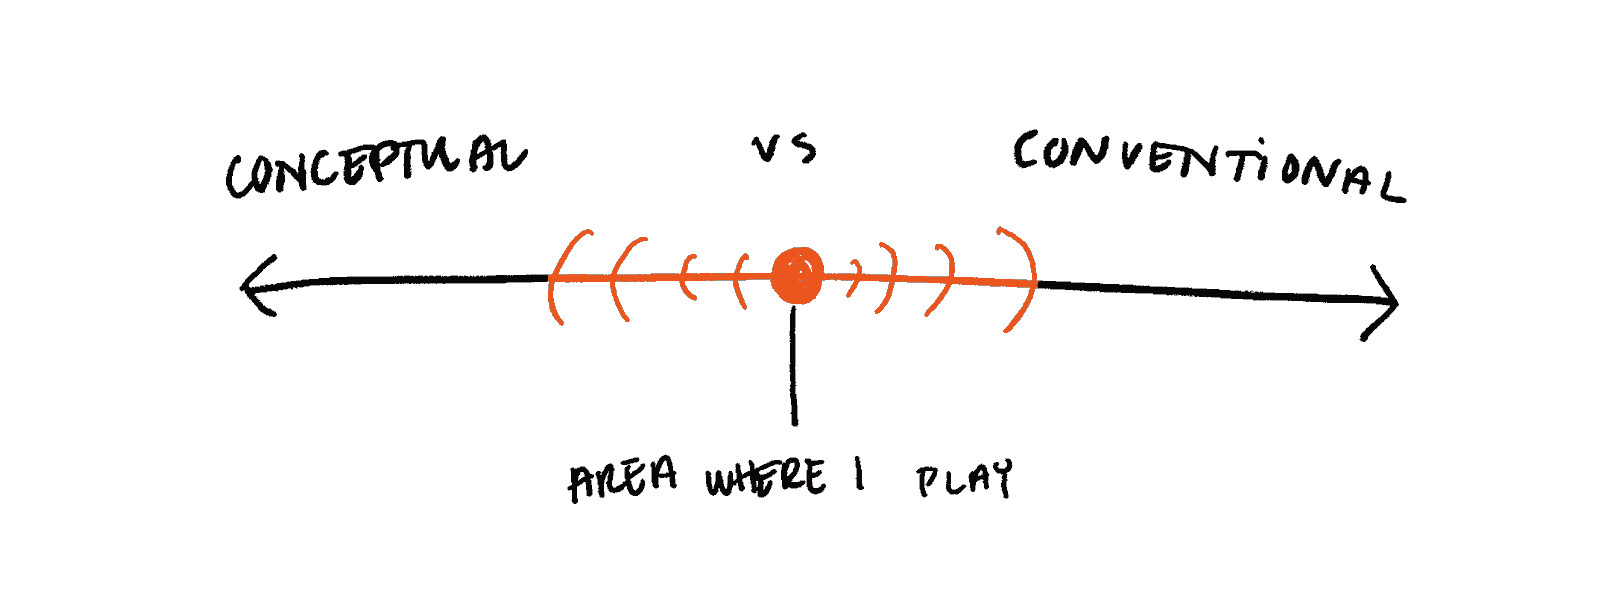 CONCEPTUAL VS CONVENTIONAL
AREA WHERE I PLAY